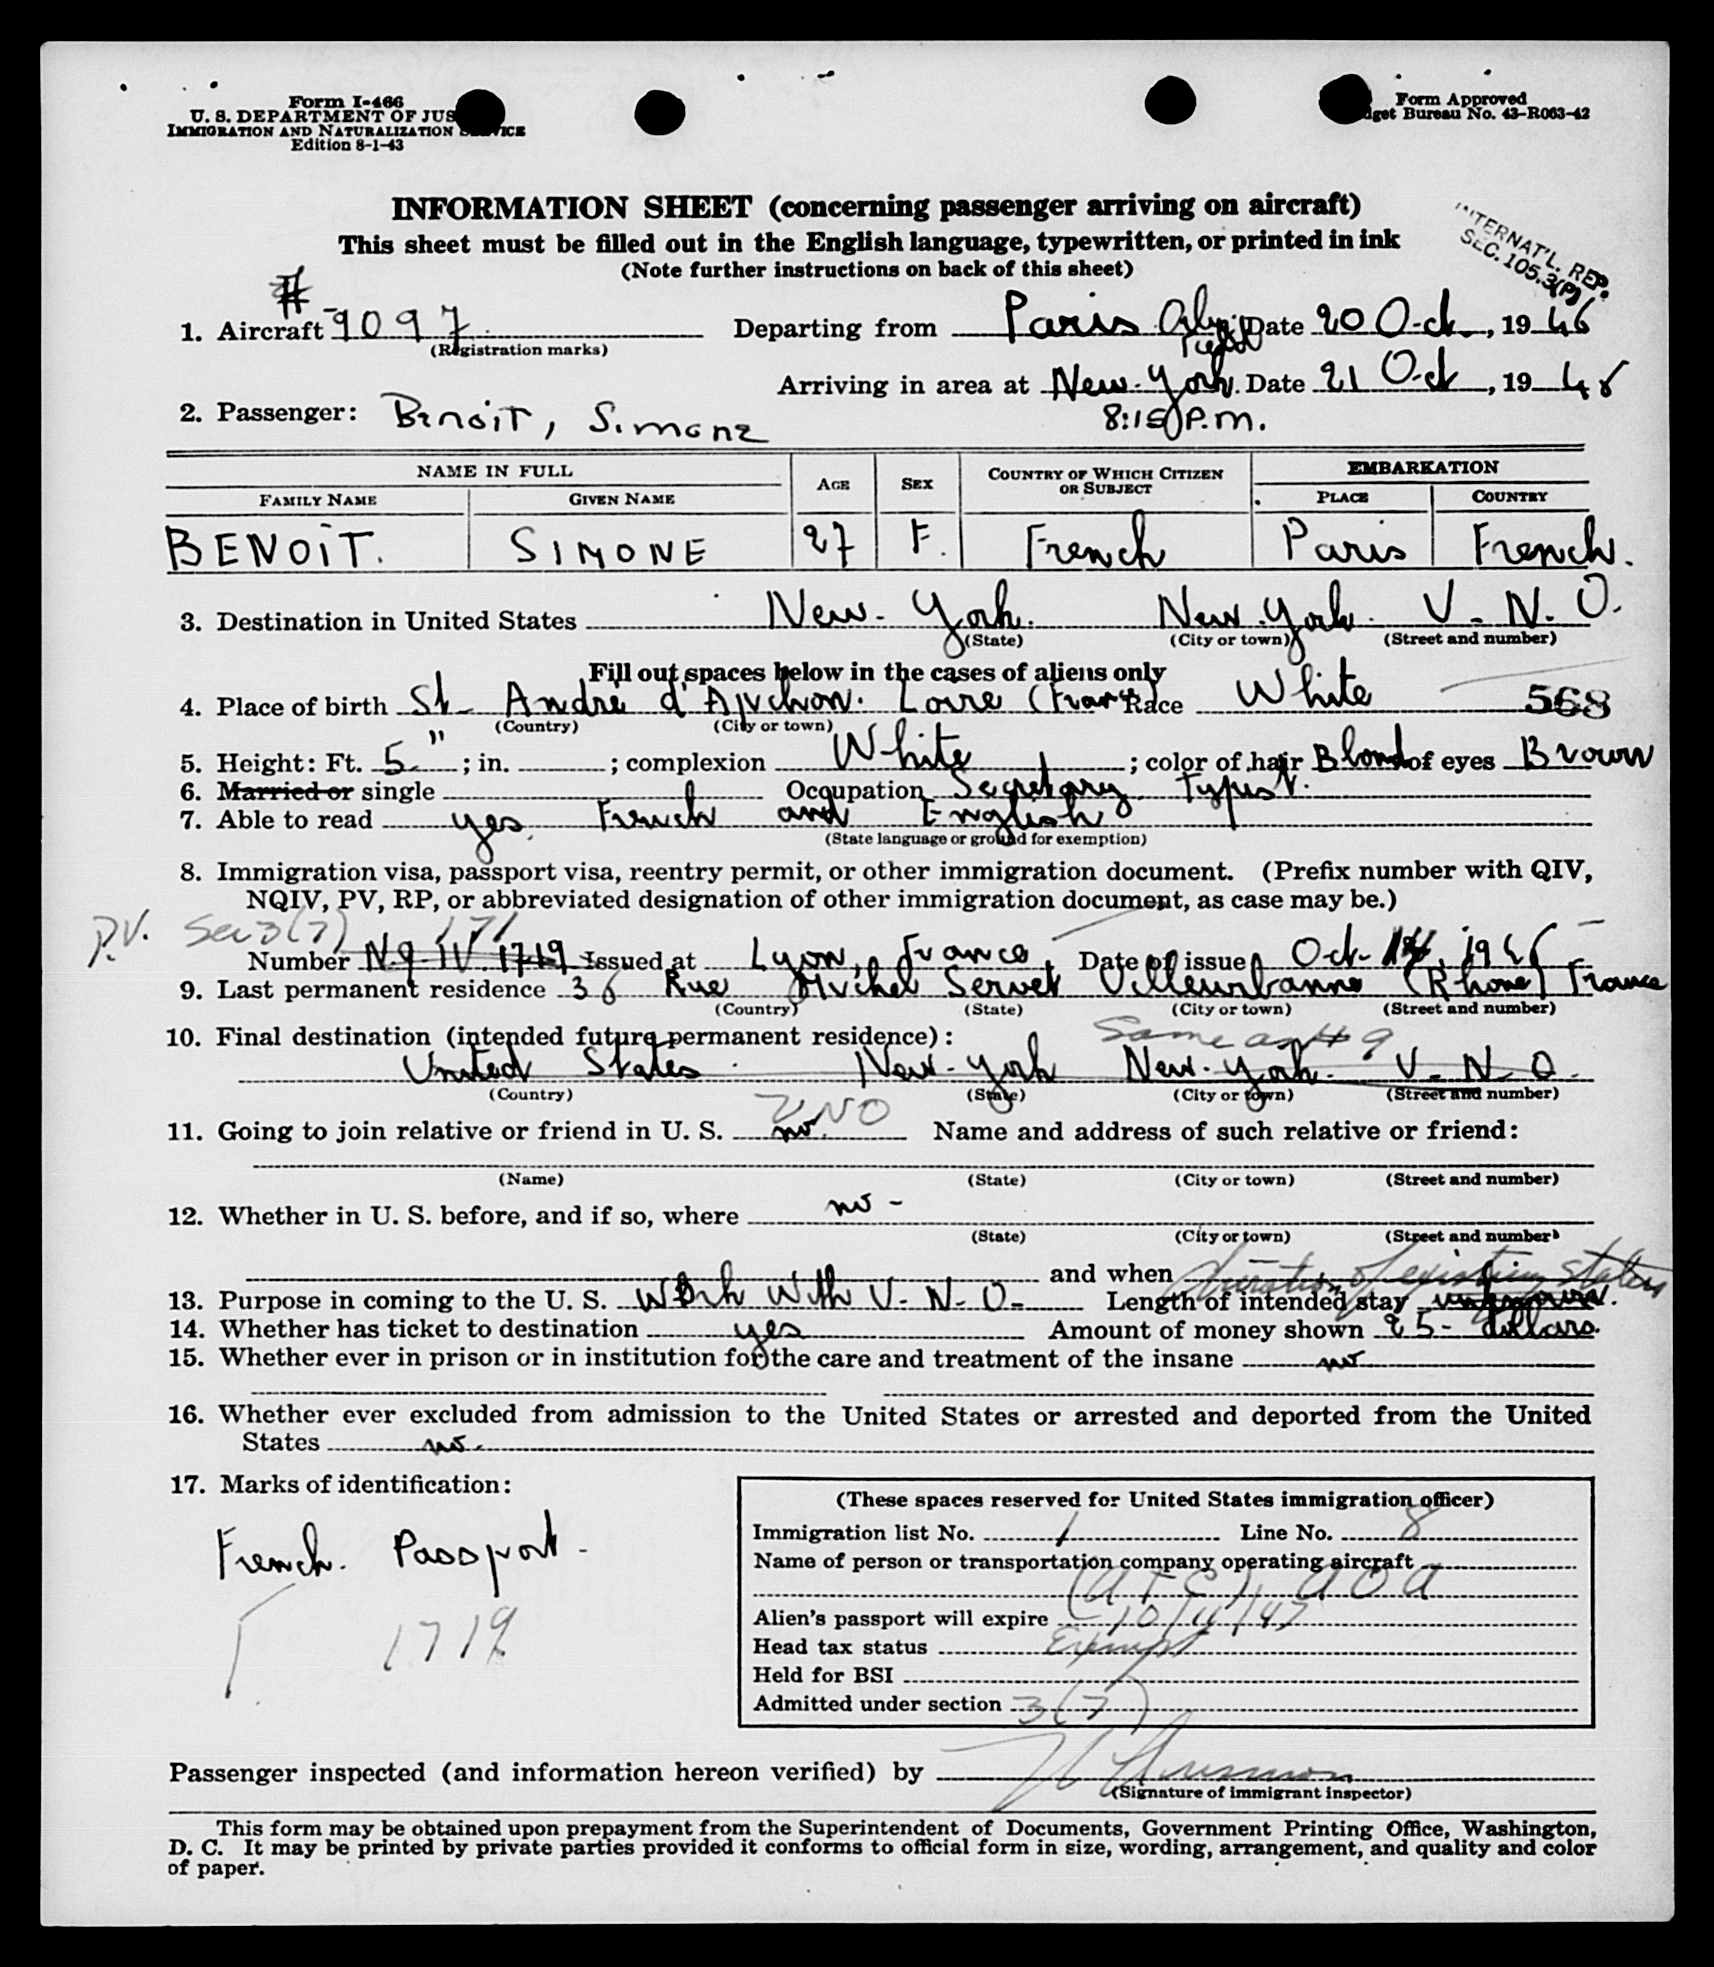 Form I-466
U. S. DEPARTMENT OF JUS
IMMIGRATION AND NATURALIZATION SERVICE
Edition 8-1-43
Form Approved
get Bureau No. 43-R063-42
INFORMATION SHEET (concerning passenger arriving on aircraft)
This sheet must be filled out in the English language, typewritten, or printed in ink
(Note further instructions on back of this sheet)
INTERNAT'L. REP.
SEC. 105.3(P)
#
1. Aircraft 9097 Departing from Paris Date 20 Oct, 1946
(Registration marks)
Arriving in area at New-York. Date 21 Oct, 1946
2. Passenger: Benoit, Simone 8:15 P.M.
NAME IN FULL AGE SEX COUNTRY OF WHICH CITIZEN OR SUBJECT EMBARKATION
FAMILY NAME GIVEN NAME PLACE COUNTRY
BENOIT. SIMONE 27 F. French Paris French.
3. Destination in United States New-York. New-York. U. N. O.
(State) (City or town) (Street and number)
Fill out spaces below in the cases of aliens only
4. Place of birth St André d'Apchon. Loire (France Race White 568
(Country) (City or town)
5. Height: Ft. 5" ; in. ; complexion White ; color of hair Blond of eyes Brown
6. Married or single Occupation Secretary Typist.
7. Able to read yes. French and English
(State language or ground for exemption)
8. Immigration visa, passport visa, reentry permit, or other immigration document. (Prefix number with QIV,
NQIV, PV, RP, or abbreviated designation of other immigration document, as case may be.)
P.V. Sec 3(7) 171
Number N.q.IV. 1719 Issued at Lyon, France Date of issue Oct. 14, 1946
9. Last permanent residence 36 Rue Michel Servet Villeurbanne (Rhone) France
(Country) (State) (City or town) (Street and number)
10. Final destination (intended future permanent residence): Same as # 9
United States New-York New-York. U. N. O.
(Country) (State) (City or town) (Street and number)
UNO
11. Going to join relative or friend in U. S. no. Name and address of such relative or friend:
(Name) (State) (City or town) (Street and number)
12. Whether in U. S. before, and if so, where no -
(State) (City or town) (Street and number)
and when duration of existing status
13. Purpose in coming to the U. S. Work with U. N. O. Length of intended stay unknown.
14. Whether has ticket to destination yes Amount of money shown 25- dollars.
15. Whether ever in prison or in institution for the care and treatment of the insane no
16. Whether ever excluded from admission to the United States or arrested and deported from the United
States no.
17. Marks of identification:
French. Passport -
1719
(These spaces reserved for United States immigration officer)
Immigration list No. 1 Line No. 8
Name of person or transportation company operating aircraft
(ATC), AOA
Alien's passport will expire 10/14/47
Head tax status Exempt
Held for BSI
Admitted under section 3(7)
Passenger inspected (and information hereon verified) by
(Signature of immigrant inspector)
This form may be obtained upon prepayment from the Superintendent of Documents, Government Printing Office, Washington,
D. C. It may be printed by private parties provided it conforms to official form in size, wording, arrangement, and quality and color
of paper.